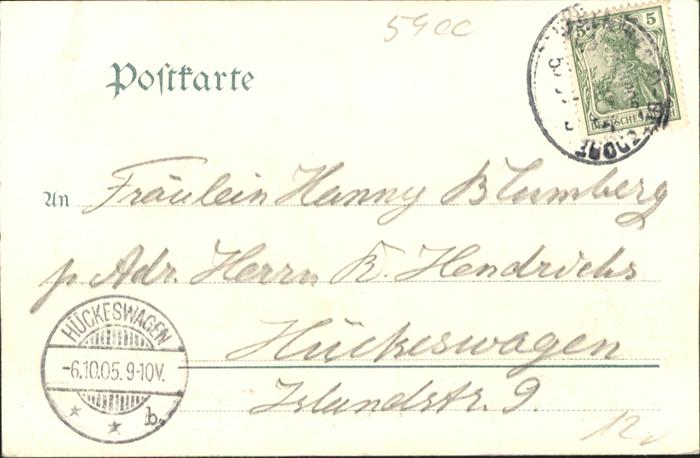 5900
Postkarte
5 5
DEUTSCHES REICH
An Fräulein Hanny Blumberg
p. Adr. Herrn K. Hendrichs
Hückeswagen
Islandstr. 9.
HÜCKESWAGEN
-6.10.05. 9-10V.
* * b.
12